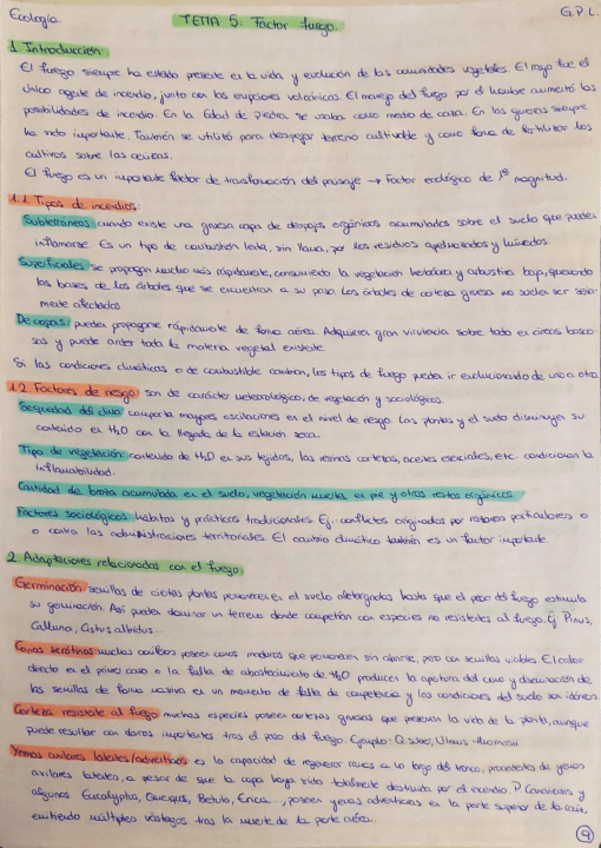 Ecología
G.P.L.
TEMA 5: Factor fuego.
1. Introducción
El fuego siempre ha estado presente en la vida y evolución de las comunidades vegetales. El rayo fue el
único agente de incendio, junto con las erupciones volcánicas. El manejo del fuego por el hombre aumentó las
posibilidades de incendio. En la Edad de Piedra se usaba como medio de caza. En las guerras siempre
ha sido importante. También se utilizó para despejar terreno cultivable y como forma de fertilizar los
cultivos sobre las cenizas.
El fuego es un importante factor de transformación del paisaje → Factor ecológico de 1ª magnitud.
1.1. Tipos de incendios:
Subterráneos: cuando existe una gruesa capa de despojos orgánicos acumulados sobre el suelo que pueden
inflamarse. Es un tipo de combustión lenta, sin llama, por los residuos apelmazados y húmedos.
Superficiales: se propagan mucho más rápidamente, consumiendo la vegetación herbácea y arbustiva baja, quemando
las bases de los árboles que se encuentran a su paso. Los árboles de corteza gruesa no suelen ser seria-
mente afectados.
De copas: pueden propagarse rápidamente de forma aérea. Adquieren gran virulencia sobre todo en áreas bosco-
sas y puede arder toda la materia vegetal existente.
Si las condiciones climáticas o de combustible cambian, los tipos de fuego pueden ir evolucionando de uno a otro.
1.2. Factores de riesgo: son de carácter meteorológico, de vegetación y sociológicos.
Sequedad del clima: comporta mayores oscilaciones en el nivel de riesgo. Las plantas y el suelo disminuyen su
contenido en H₂O con la llegada de la estación seca.
Tipo de vegetación: contenido de H₂O en sus tejidos, las resinas, cortezas, aceites esenciales, etc. condicionan la
inflamabilidad.
Cantidad de broza acumulada en el suelo, vegetación muerta en pie y otros restos orgánicos.
Factores sociológicos: hábitos y prácticas tradicionales. Ej. conflictos originados por razones particulares o
o contra las administraciones territoriales. El cambio climático también es un factor importante.
2. Adaptaciones relacionadas con el fuego:
Germinación: semillas de ciertas plantas permanecen en el suelo aletargadas hasta que el paso del fuego estimula
su germinación. Así pueden dominar un terreno donde competían con especies no resistentes al fuego. Ej Pinus,
Calluna, Cistus albidus...
Conos serótinos: muchas coníferas poseen conos maduros que permanecen sin abrirse, pero con semillas viables. El calor
directo en el primer caso o la falta de abastecimiento de H₂O producen la apertura del cono y diseminación de
las semillas de forma masiva en un momento de falta de competencia y las condiciones del suelo son idóneas.
Corteza resistente al fuego: muchas especies poseen cortezas gruesas que preservan la vida de la planta, aunque
puede resultar con daños importantes tras el paso del fuego. Ejemplo: Q. suber, Ulmus
Yemas axilares latentes/adventicias: es la capacidad de regenerar ramas a lo largo del tronco, procedentes de yemas
axilares latentes, a pesar de que la copa haya sido totalmente destruida por el incendio. P. Canariensis y
algunos Eucalyptus, Quercus, Betula, Erica..., poseen yemas adventicias en la parte superior de la raíz,
emitiendo múltiples vástagos tras la muerte de la parte aérea.
9